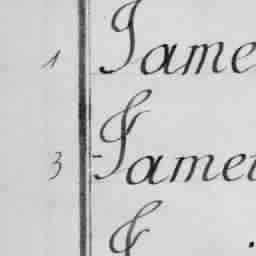 1 Jame
3 Jame